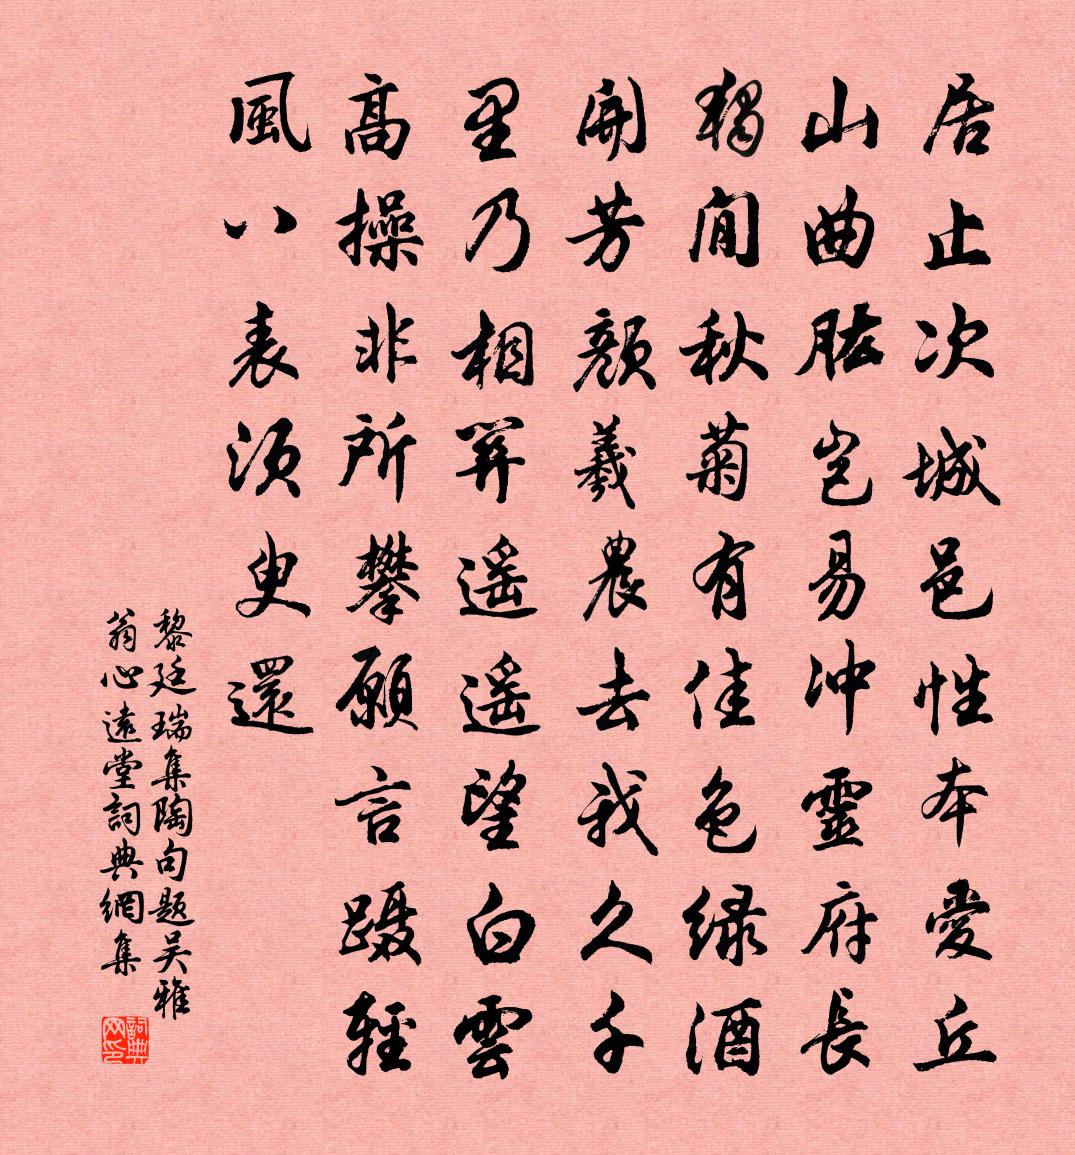 居止次城邑性本愛丘
山曲肱岂易冲靈府長
獨閒秋菊有佳色绿酒
開芳顏羲農去我久千
里乃相關遥遥望白雲
高操非所攀願言蹑轻
風八表须臾還
黎廷瑞集陶句題吴雅
翁心遠堂詞典網集
詞典网印